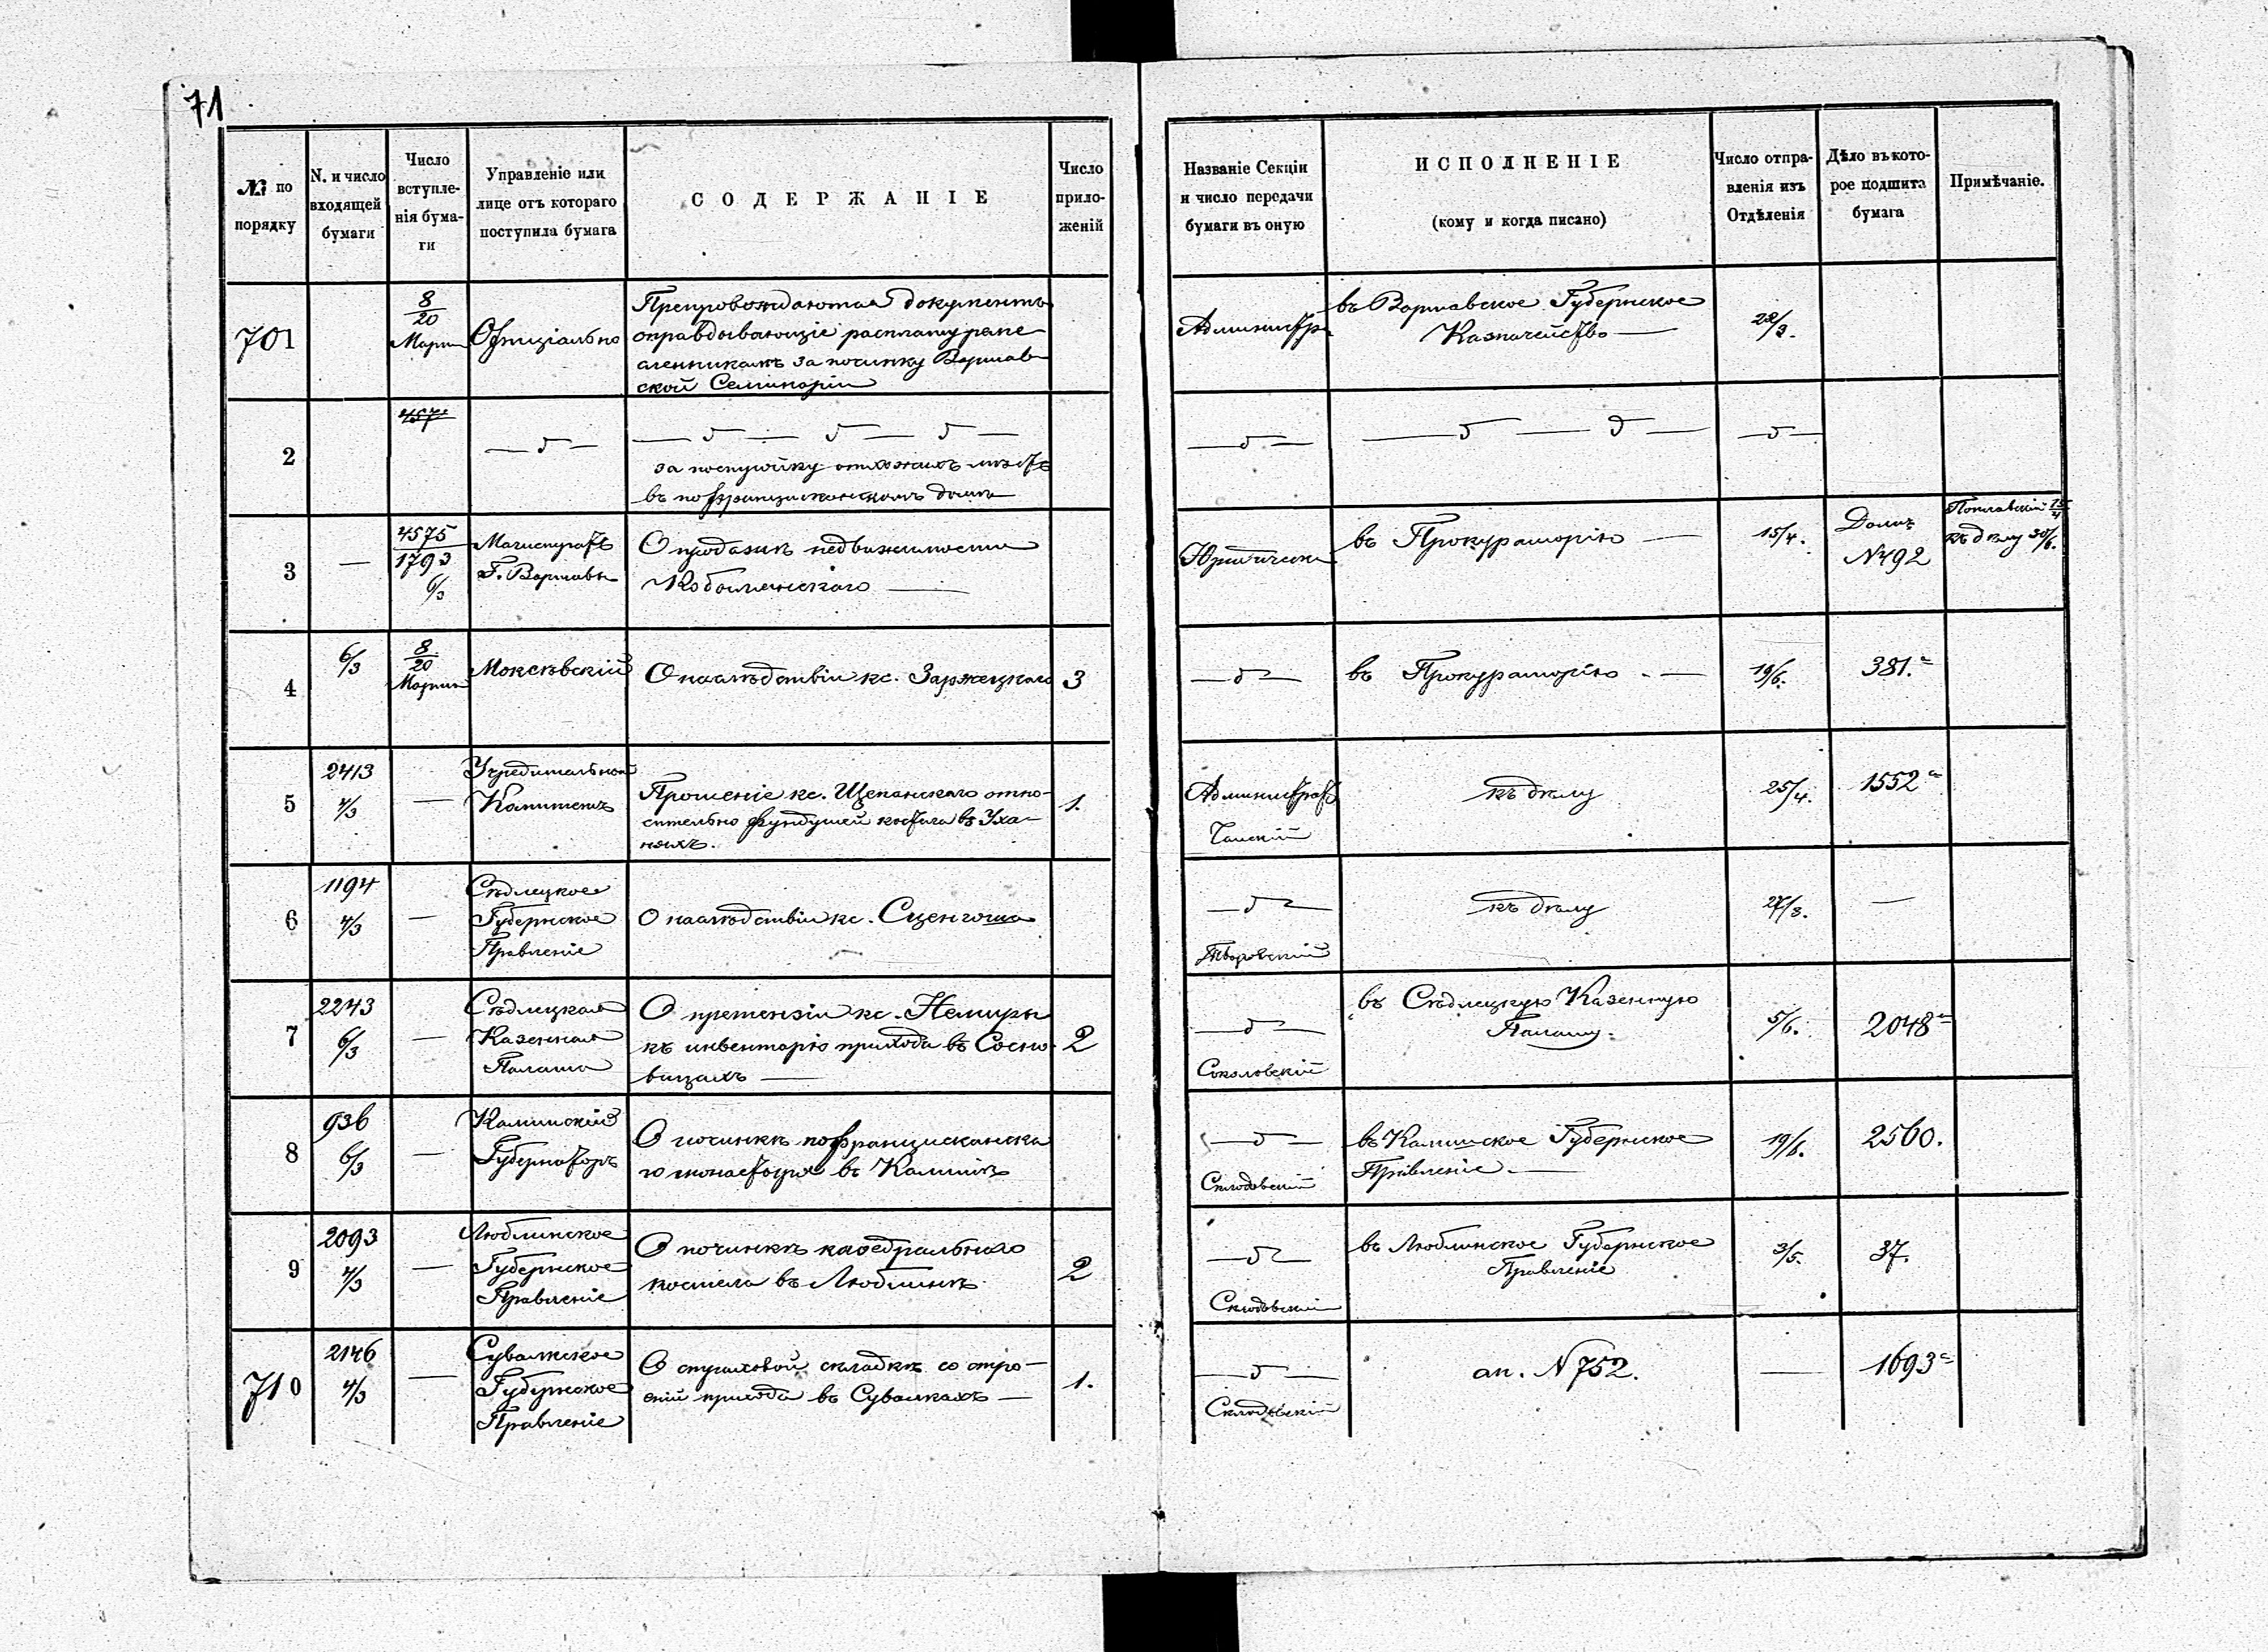 71
№ по
порядку
N. и число
входящей
бумаги
Число
вступле-
нія бума-
ги
Управленіе или
лице отъ котораго
поступила бумага
СОДЕРЖАНІЕ
Число
прило-
женій
Названіе Секціи
и число передачи
бумаги въ оную
ИСПОЛНЕНІЕ
(кому и когда писано)
Число отпра-
вленія изъ
Отдѣленія
Дѣло въ кото-
рое подшита
бумага
Примѣчаніе.
701
8/20
Марта
Офиціально
Препровождаются документы
оправдывающіе расплату реме-
сленникамъ за починку Варшав-
ской Семинаріи
Администр
въ Варшавское Губернское
Казначейство —
22/3.
2
457
— д —
— д — д — д —
за постройку отхожихъ мѣстъ
въ пофранцисканскомъ домѣ
— д —
— д — д —
— д —
3
—
4575
1793
6/3
Магистратъ
Г. Варшавы
О продажѣ недвижимости
—
Юридическ
въ Прокураторію —
15/4.
№ 492
къ дѣлу 30/6.
4
6/3
8/20
Марта
Моксѣвскій
О наслѣдствіи кс. Заржецкаго
3
— д —
въ Прокураторію . —
19/6.
381.а
5
2413
4/3
—
Учредительный
Комитетъ
Прошеніе кс. Щепанскаго отно-
сительно фундушей костела въ Уха-
няхъ.
1.
Администрат
къ дѣлу
25/4.
1552а
6
1194
4/3
—
Сѣдлецкое
Губернское
Правленіе
О наслѣдствіи кс. Сценгоша
— д —
Яворовскій
къ дѣлу
27/3.
—
7
2243
6/3
—
Сѣдлецкая
Казенная
Палата
О претензіи кс. Немиры
къ инвентарю прихода въ Сосно-
вицахъ —
2
— д —
Соколовскій
въ Сѣдлецкую Казенную
Палату.
5/6.
2048а
8
936
6/3
—
Калишскій
Губернаторъ
О починкѣ пофранцисканска
го монастыря въ Калишѣ
— д —
Склодовскій
въ Калишское Губернское
Правленіе. —
19/6.
2560.
9
2093
4/3
—
Люблинское
Губернское
Правленіе
О починкѣ каѳедральнаго
костела въ Люблинѣ
2
— д —
Склодовскій
въ Люблинское Губернское
Правленіе
3/5.
37.
710
2146
4/3
—
Сувалкское
Губернское
Правленіе
О страховой складкѣ со стро-
еній прихода въ Сувалкахъ —
1.
— д —
Склодовскій
ап. № 752.
—
1693а